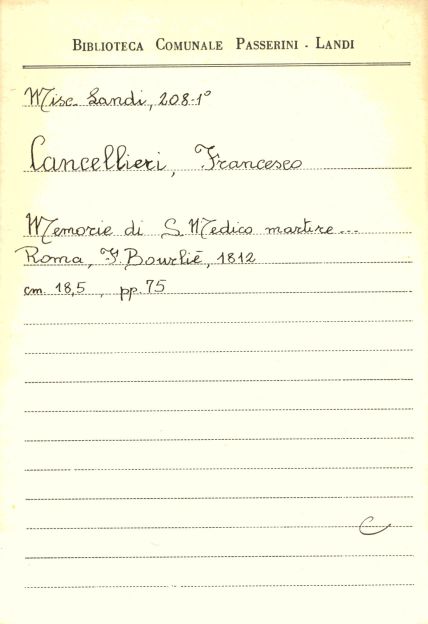 BIBLIOTECA COMUNALE PASSERINI - LANDI
Misc. Landi, 208-1°
Cancellieri, Francesco
Memorie di S. Medico martire...
Roma, F. Bourliè, 1812
cm. 18,5, pp. 75
C